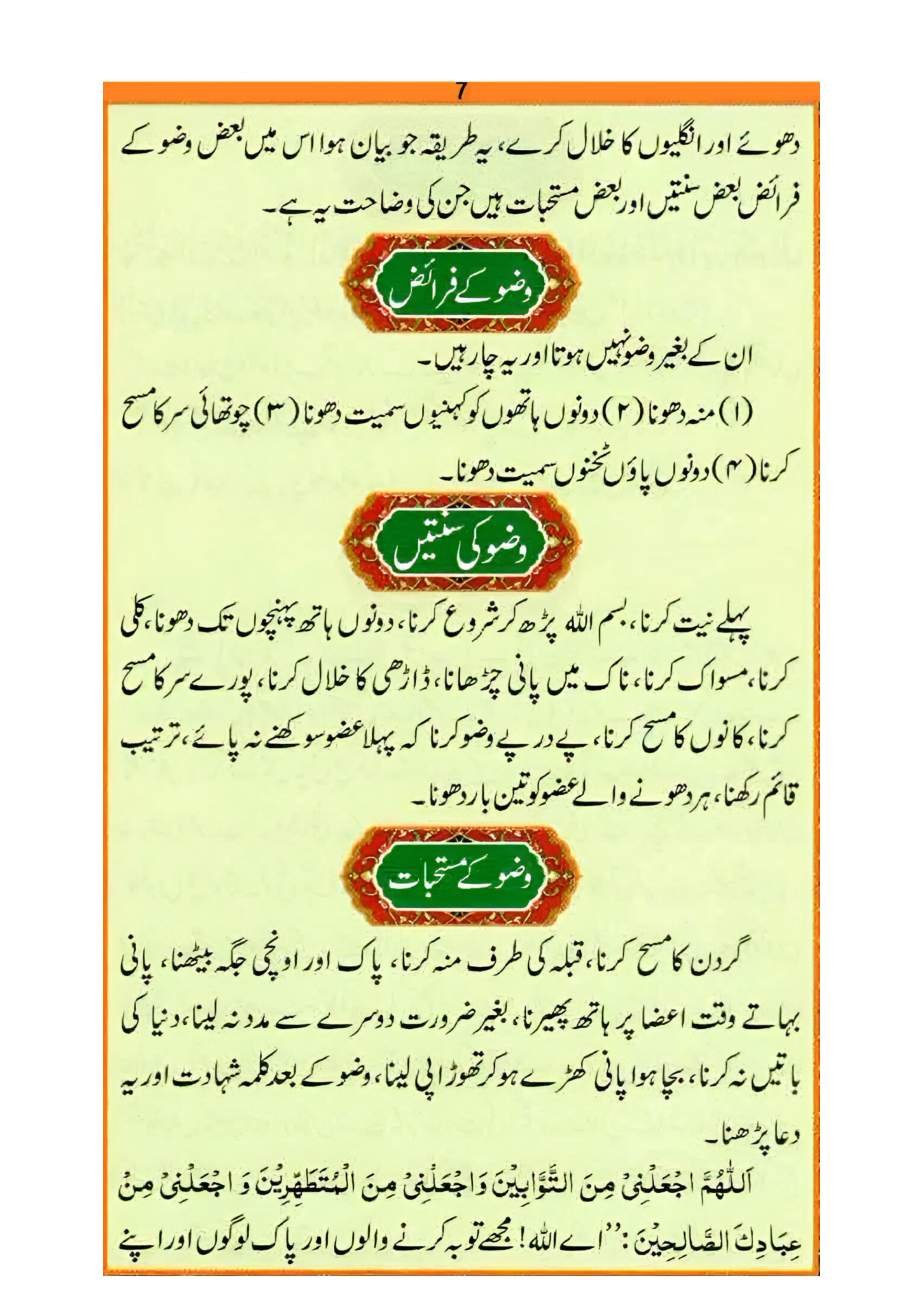 7
دھوئے اور انگلیوں کا خلال کرے، یہ طریقہ جو بیان ہوا اس میں بعض وضو کے
فرائض بعض سنتیں اور بعض مستحبات ہیں جن کی وضاحت یہ ہے۔
وضو کے فرائض
ان کے بغیر وضو نہیں ہوتا اور یہ چار ہیں۔
(۱) منہ دھونا (۲) دونوں ہاتھوں کو کہنیوں سمیت دھونا (۳) چوتھائی سر کا مسح
کرنا (۴) دونوں پاؤں ٹخنوں سمیت دھونا۔
وضو کی سنتیں
پہلے نیت کرنا، بسم اللہ پڑھ کر شروع کرنا، دونوں ہاتھ پہنچوں تک دھونا، کلی
کرنا، مسواک کرنا، ناک میں پانی چڑھانا، ڈاڑھی کا خلال کرنا، پورے سر کا مسح
کرنا، کانوں کا مسح کرنا، پے در پے وضو کرنا کہ پہلا عضو سوکھنے نہ پائے، ترتیب
قائم رکھنا، ہر دھونے والے عضو کو تین بار دھونا۔
وضو کے مستحبات
گردن کا مسح کرنا، قبلہ کی طرف منہ کرنا، پاک اور اونچی جگہ بیٹھنا، پانی
بہاتے وقت اعضا پر ہاتھ پھیرنا، بغیر ضرورت دوسرے سے مدد نہ لینا، دنیا کی
باتیں نہ کرنا، بچا ہوا پانی کھڑے ہو کر تھوڑا پی لینا، وضو کے بعد کلمہ شہادت اور یہ
دعا پڑھنا۔
اَللّٰهُمَّ اجْعَلْنِيْ مِنَ التَّوَّابِيْنَ وَاجْعَلْنِيْ مِنَ الْمُتَطَهِّرِيْنَ وَ اجْعَلْنِيْ مِنْ
عِبَادِكَ الصَّالِحِيْنَ: ’’اے اللہ! مجھے توبہ کرنے والوں اور پاک لوگوں اور اپنے